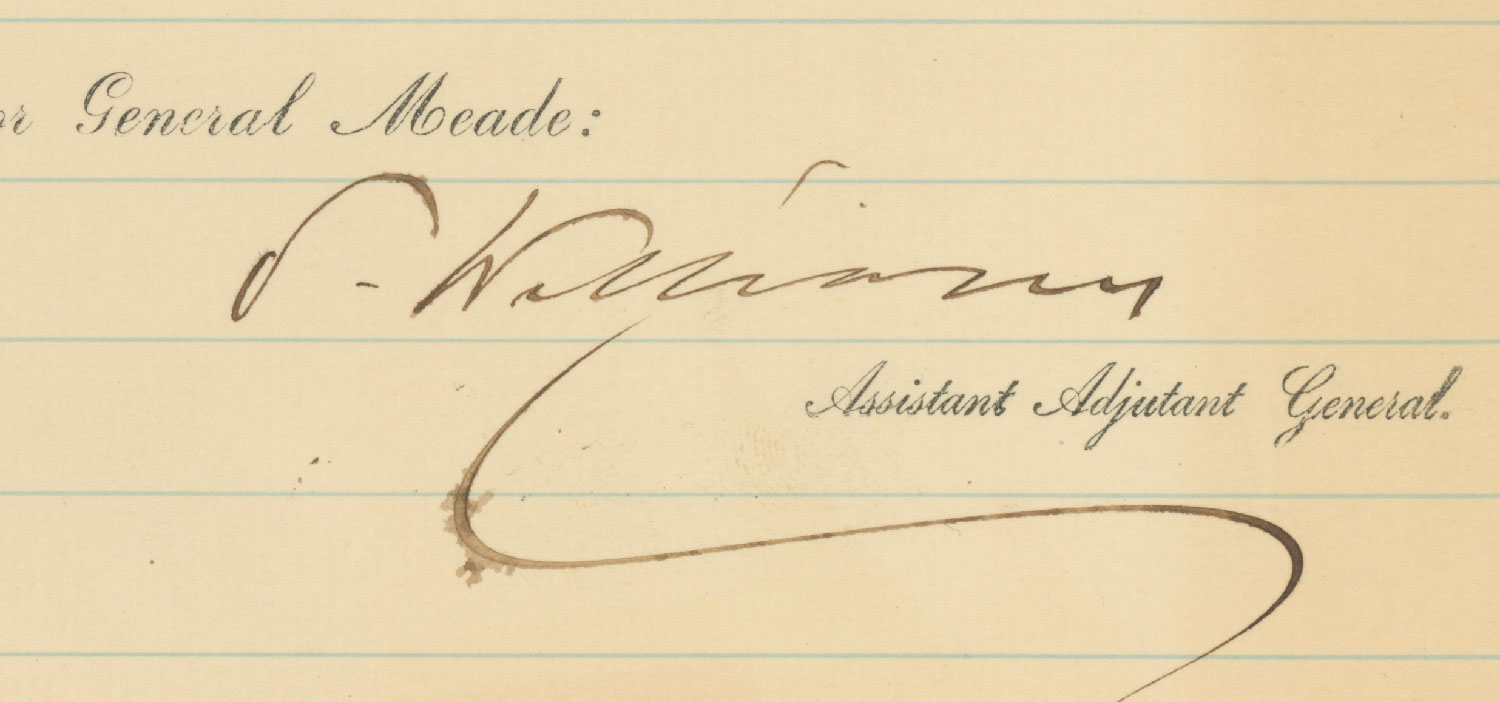 or General Meade:
S. Williams
Assistant Adjutant General.